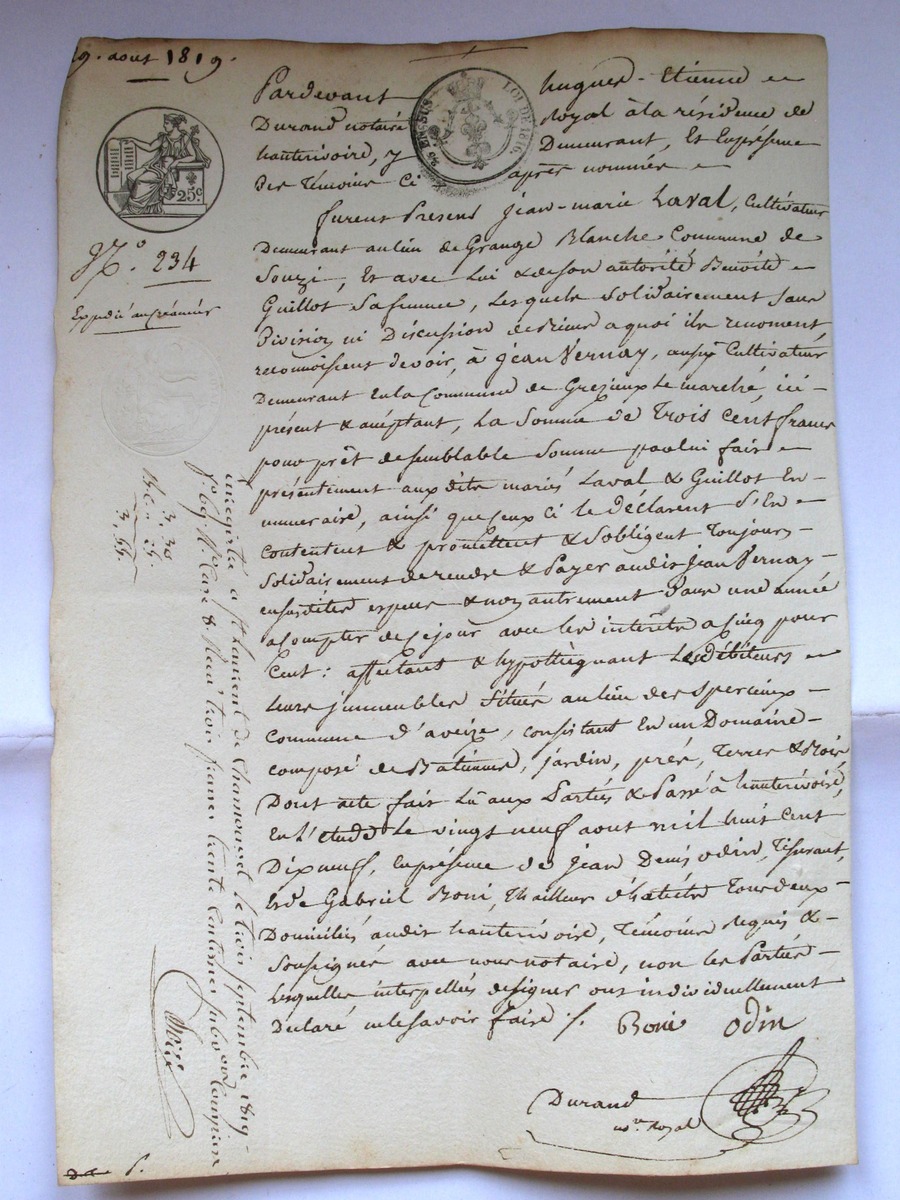 29. aout 1819.
25c.
25 EN SUS
LOI DE 1816.
N.° 234
Expédié au créancier
Pardevant hugues-Etienne
Durand notaire Royal à la résidence de
hauterivoire, y Demeurant, Et En présence
Des Témoins Ci après nommés
furent Presens Jean-marie Laval, Cultivateur
Demeurant au lieu de Grange Blanche Commune de
Souzi, Et avec Lui & de son autorité Benoite
Guillot Sa femme, Lesquels Solidairement Sans
Division ni Discussion de biens a quoi ils renoncent,
reconnoissent devoir, à Jean Vernay, aussi Cultivateur
Demeurant En la Commune de Grezieux Le marché, ici
présent & acceptant, La Somme de Trois Cent francs
pour prêt de semblable Somme par lui fait
présentement aux dits mariés Laval & Guillot En
numeraire, ainsi que ceux ci le déclarent S'En
Contentent & promettent & S'obligent Toujours
Solidairement de rendre & Payer audit Jean Vernay
en susdites especes & non autrement Dans une année
a Compter de ce jour avec les interets a Cinq pour
Cent: affectant & hypothèquant Les débiteurs
Leurs immeubles Situés au lieu des
Commune d'aveize, Consistant En un Domaine
Composé de Batimens, Jardin, prés, Terres & Bois
Dont acte fait Lû aux Parties & Passé à hauterivoire,
En L'etude Le vingt neuf aout mil huit Cent
Dix neuf, En présence de Jean Denis odin, Tisserant,
Et de Gabriel Boni, Thailleur d'habits Tous deux
Domiciliés audit hauterivoire, Témoins requis &
Soussignés avec nous notaire, non les Parties
Lesquelles interpellées de signer ont individuellement
Déclaré ne le savoir faire ./.
Boni odin
Durand
n.re Royal
enregistré a St Laurent de Chamousset le trois septembre 1819
f.° 69 R.° Case 8 Recu trois francs trente centimes subvon compris
3. 30
25.
3. 55.